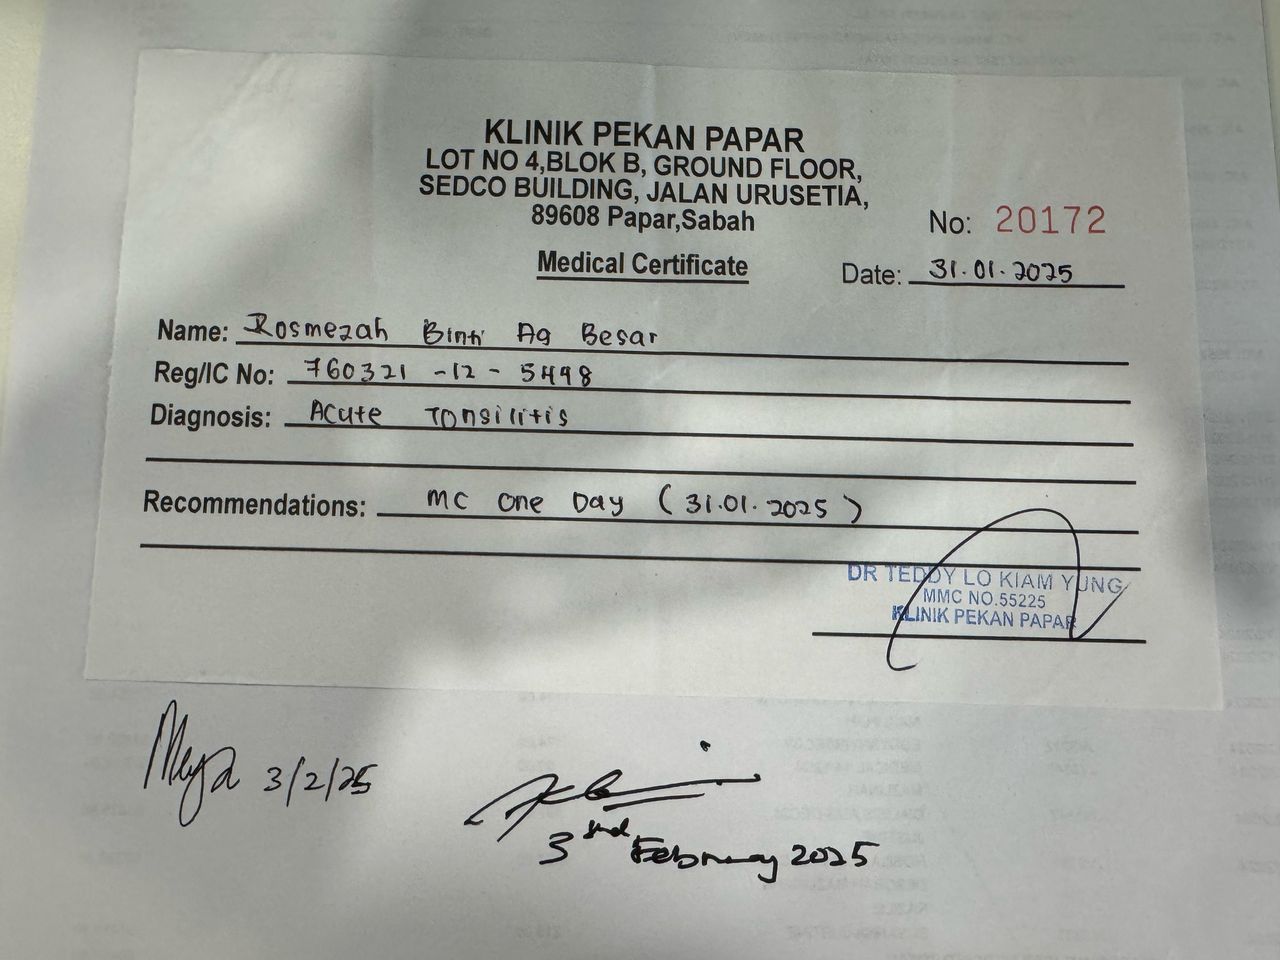 KLINIK PEKAN PAPAR
LOT NO 4,BLOK B, GROUND FLOOR,
SEDCO BUILDING, JALAN URUSETIA,
89608 Papar,Sabah
No: 20172
Medical Certificate
Date: 31.01.2025
Name: Rosmezah Binti Ag Besar
Reg/IC No: 760321-12-5498
Diagnosis: Acute Tonsilitis
Recommendations: MC One Day (31.01.2025)
DR TEDDY LO KIAM YUNG
MMC NO.55225
KLINIK PEKAN PAPAR
3/2/25
3 February 2025